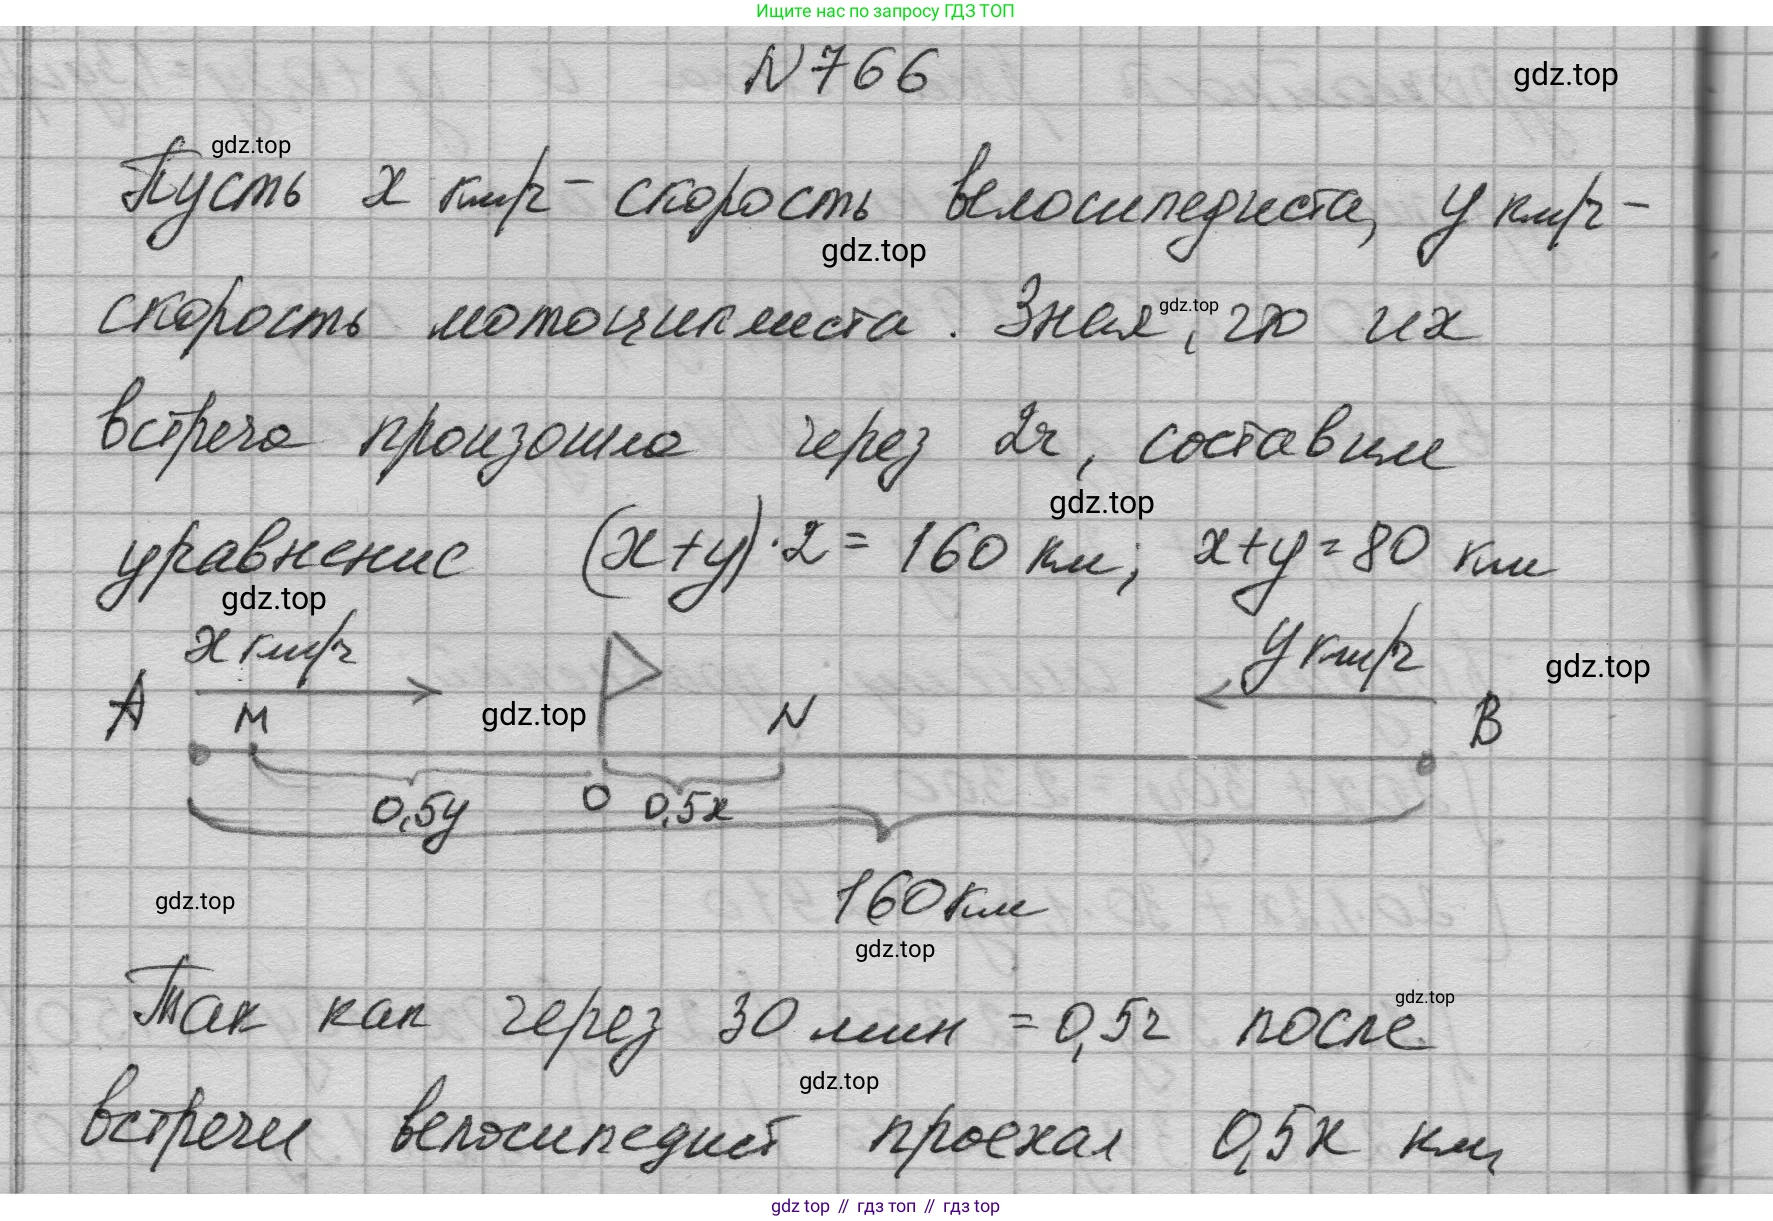 Ищите нас по запросу ГДЗ ТОП
N 766
gdz.top
gdz.top
Пусть x км/ч - скорость велосипедиста, y км/ч -
gdz.top
скорость мотоциклиста. Зная, что их
gdz.top
встреча произошла через 2ч, составим
gdz.top
уравнение (x+y)·2 = 160 км; x+y=80 км
gdz.top
x км/ч
y км/ч
gdz.top
A M gdz.top N B
0,5y O 0,5x
160 км
gdz.top
gdz.top
Так как через 30 мин = 0,5ч после
gdz.top
gdz.top
встречи велосипедист проехал 0,5x км,
gdz top // гдз топ // гдз top